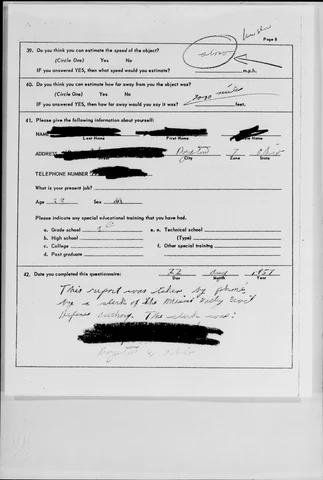 Page 8
39. Do you think you can estimate the speed of the object?
(Circle One) Yes No
IF you answered YES, then what speed would you estimate? m.p.h.
slow
40. Do you think you can estimate how far away from you the object was?
(Circle One) Yes No
IF you answered YES, then how far away would you say it was? feet.
41. Please give the following information about yourself:
NAME
Last Name First Name Middle Name
ADDRESS Dayton 7 Ohio
Street City Zone State
TELEPHONE NUMBER
What is your present job?
Age 28 Sex M
Please indicate any special educational training that you have had.
a. Grade school 8th e. Technical school
b. High school (Type)
c. College f. Other special training
d. Post graduate
42. Date you completed this questionnaire: 22 Aug
Day Month Year
This report was taken by phone
by a clerk of the Miami Valley Civil
Defense Authority. The clerk was: